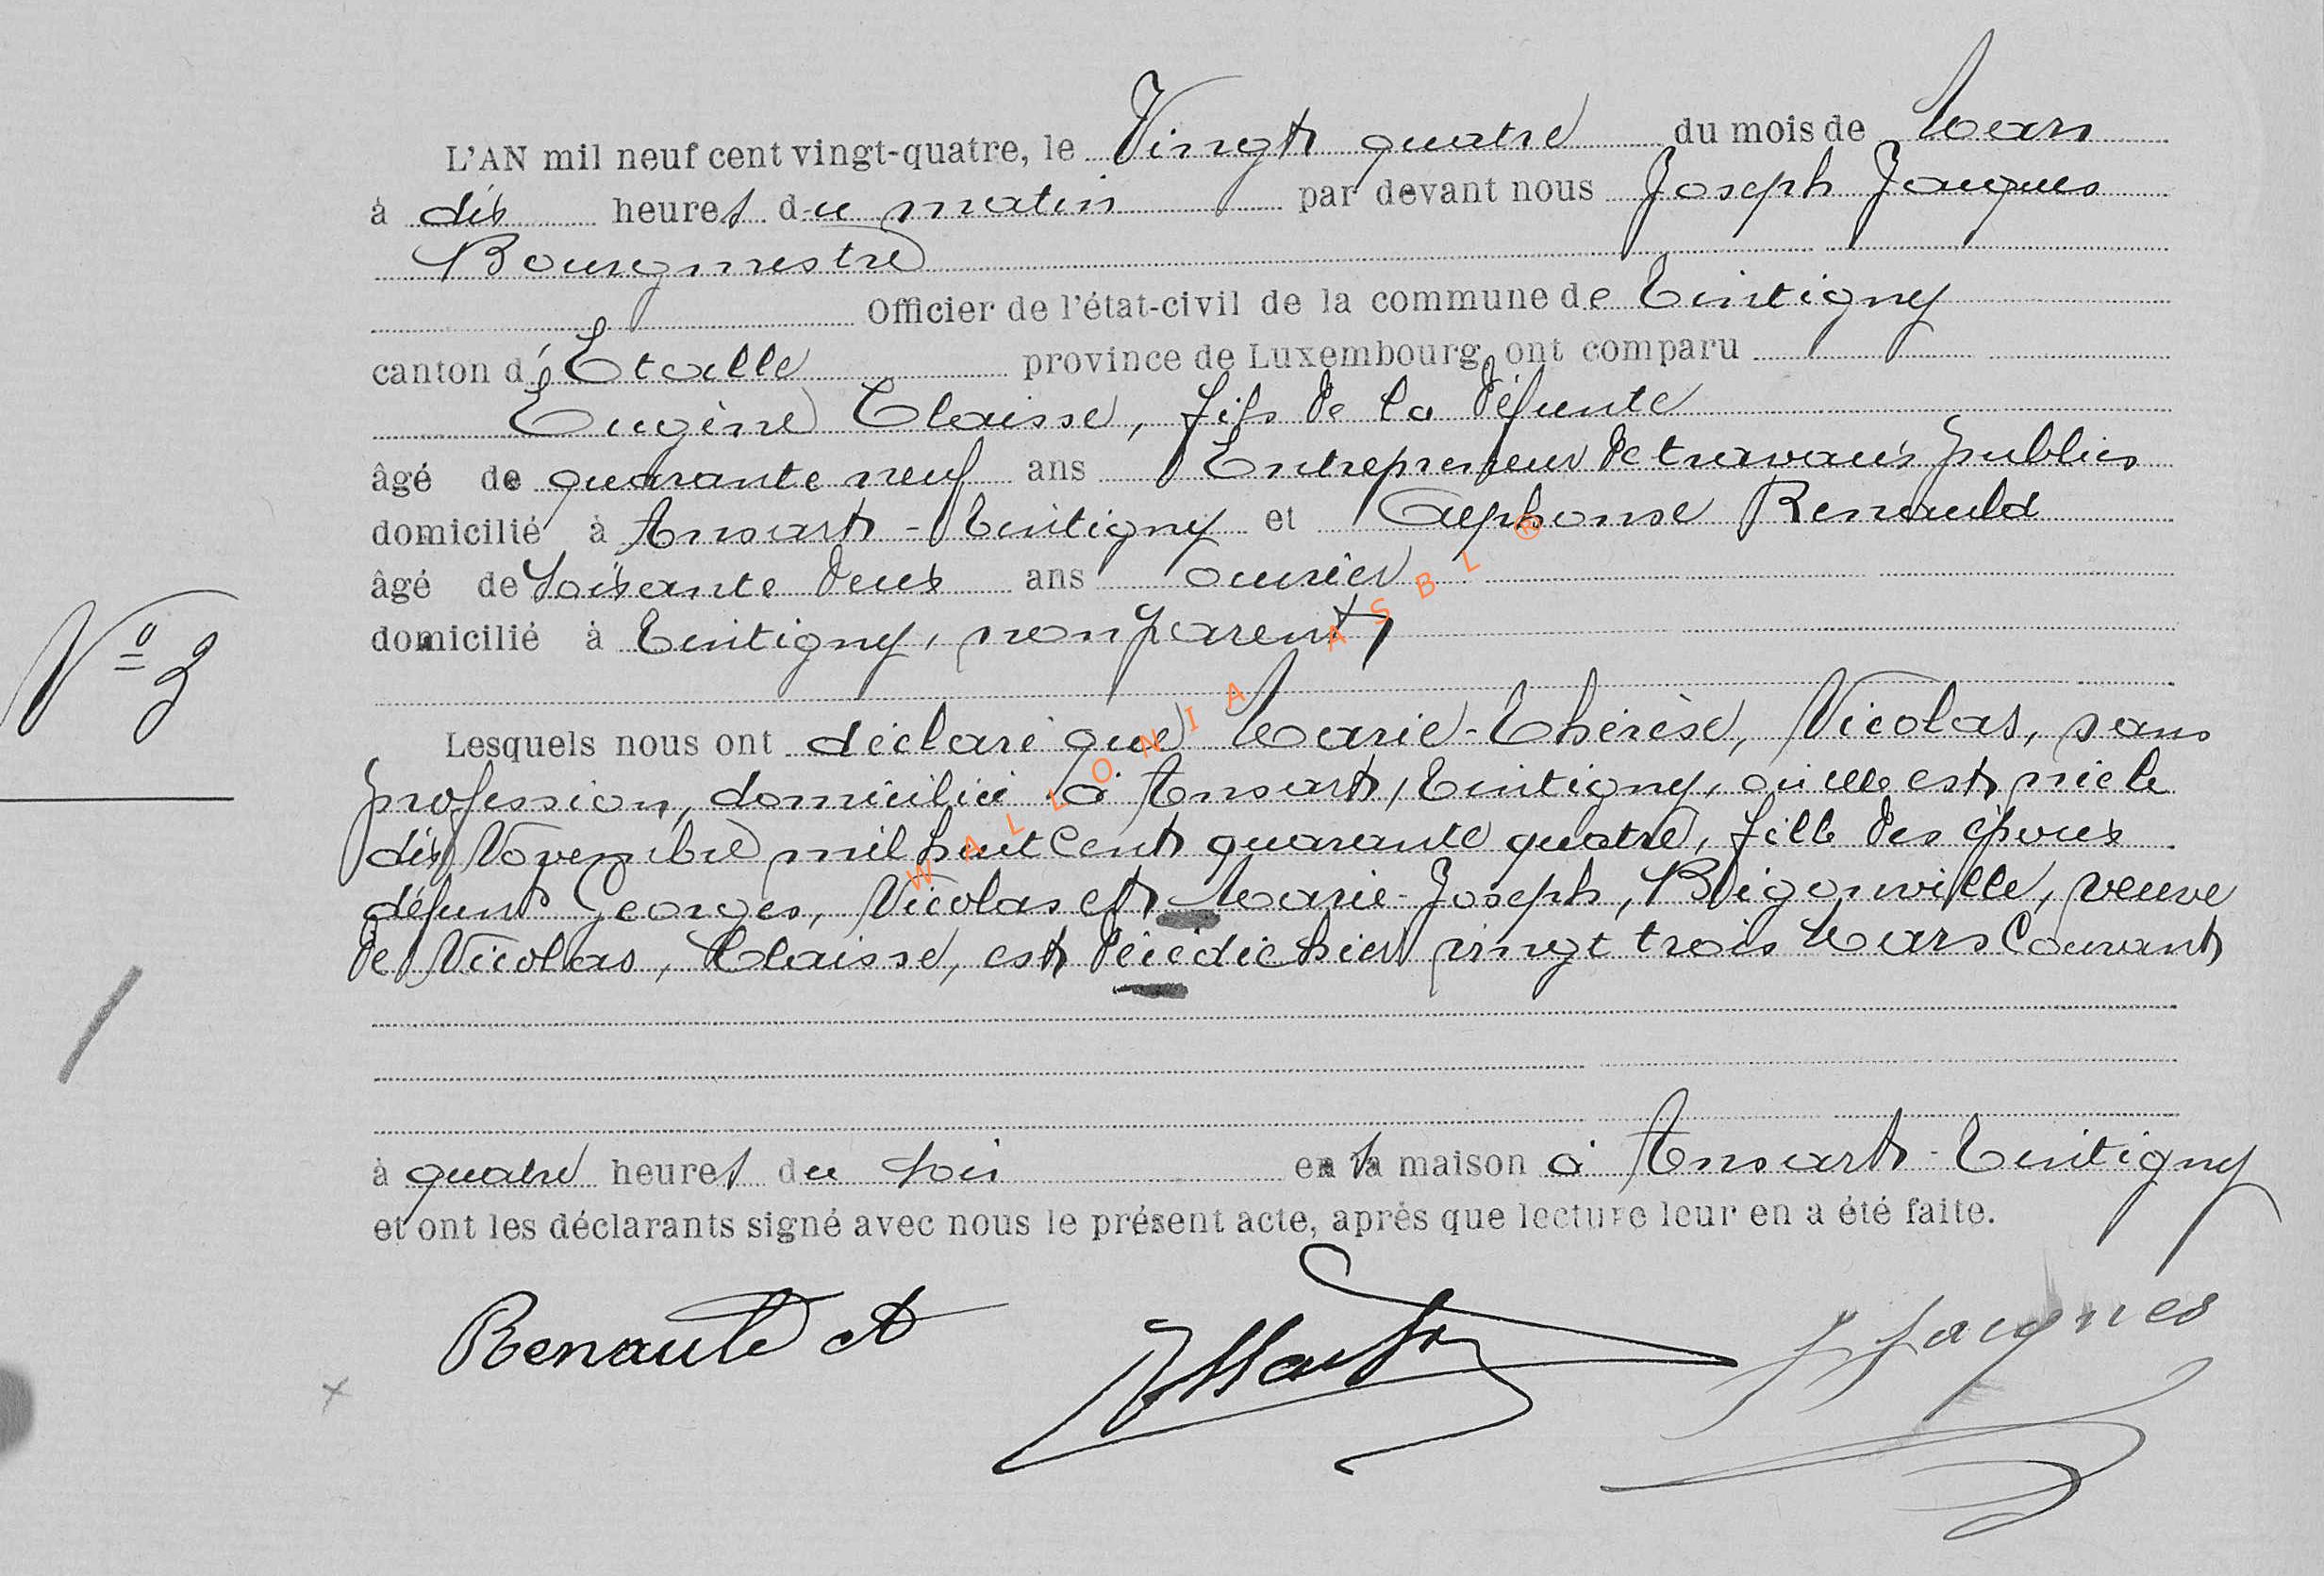 L'AN mil neuf cent vingt-quatre, le Vingt quatre du mois de Mars
à dix heures du matin par devant nous Joseph Jacques
Bourgmestre
Officier de l'état-civil de la commune de Tintigny
canton d'Etalle province de Luxembourg, ont comparu
Eugène Claisse, fils de la défunte
âgé de quarante neuf ans Entrepreneur de travaux publics
domicilié à Ansart-Tintigny et Alphonse Renauld
âgé de soixante deux ans ouvrier
domicilié à Tintigny, non parent,
N° 3
Lesquels nous ont déclaré que Marie-Thérèse, Nicolas, sans
profession, domiciliée à Ansart, Tintigny, où elle est née le
dix Novembre mil huit cent quarante quatre, fille des époux
défunts Georges, Nicolas et Marie-Joseph, Bigonville, veuve
de Nicolas, Claisse, est décédée hier vingt trois Mars Courant
à quatre heures du soir en sa maison à Ansart-Tintigny
et ont les déclarants signé avec nous le présent acte, après que lecture leur en a été faite.
Renauld A J Jacques
WALLONIA ASBL ®